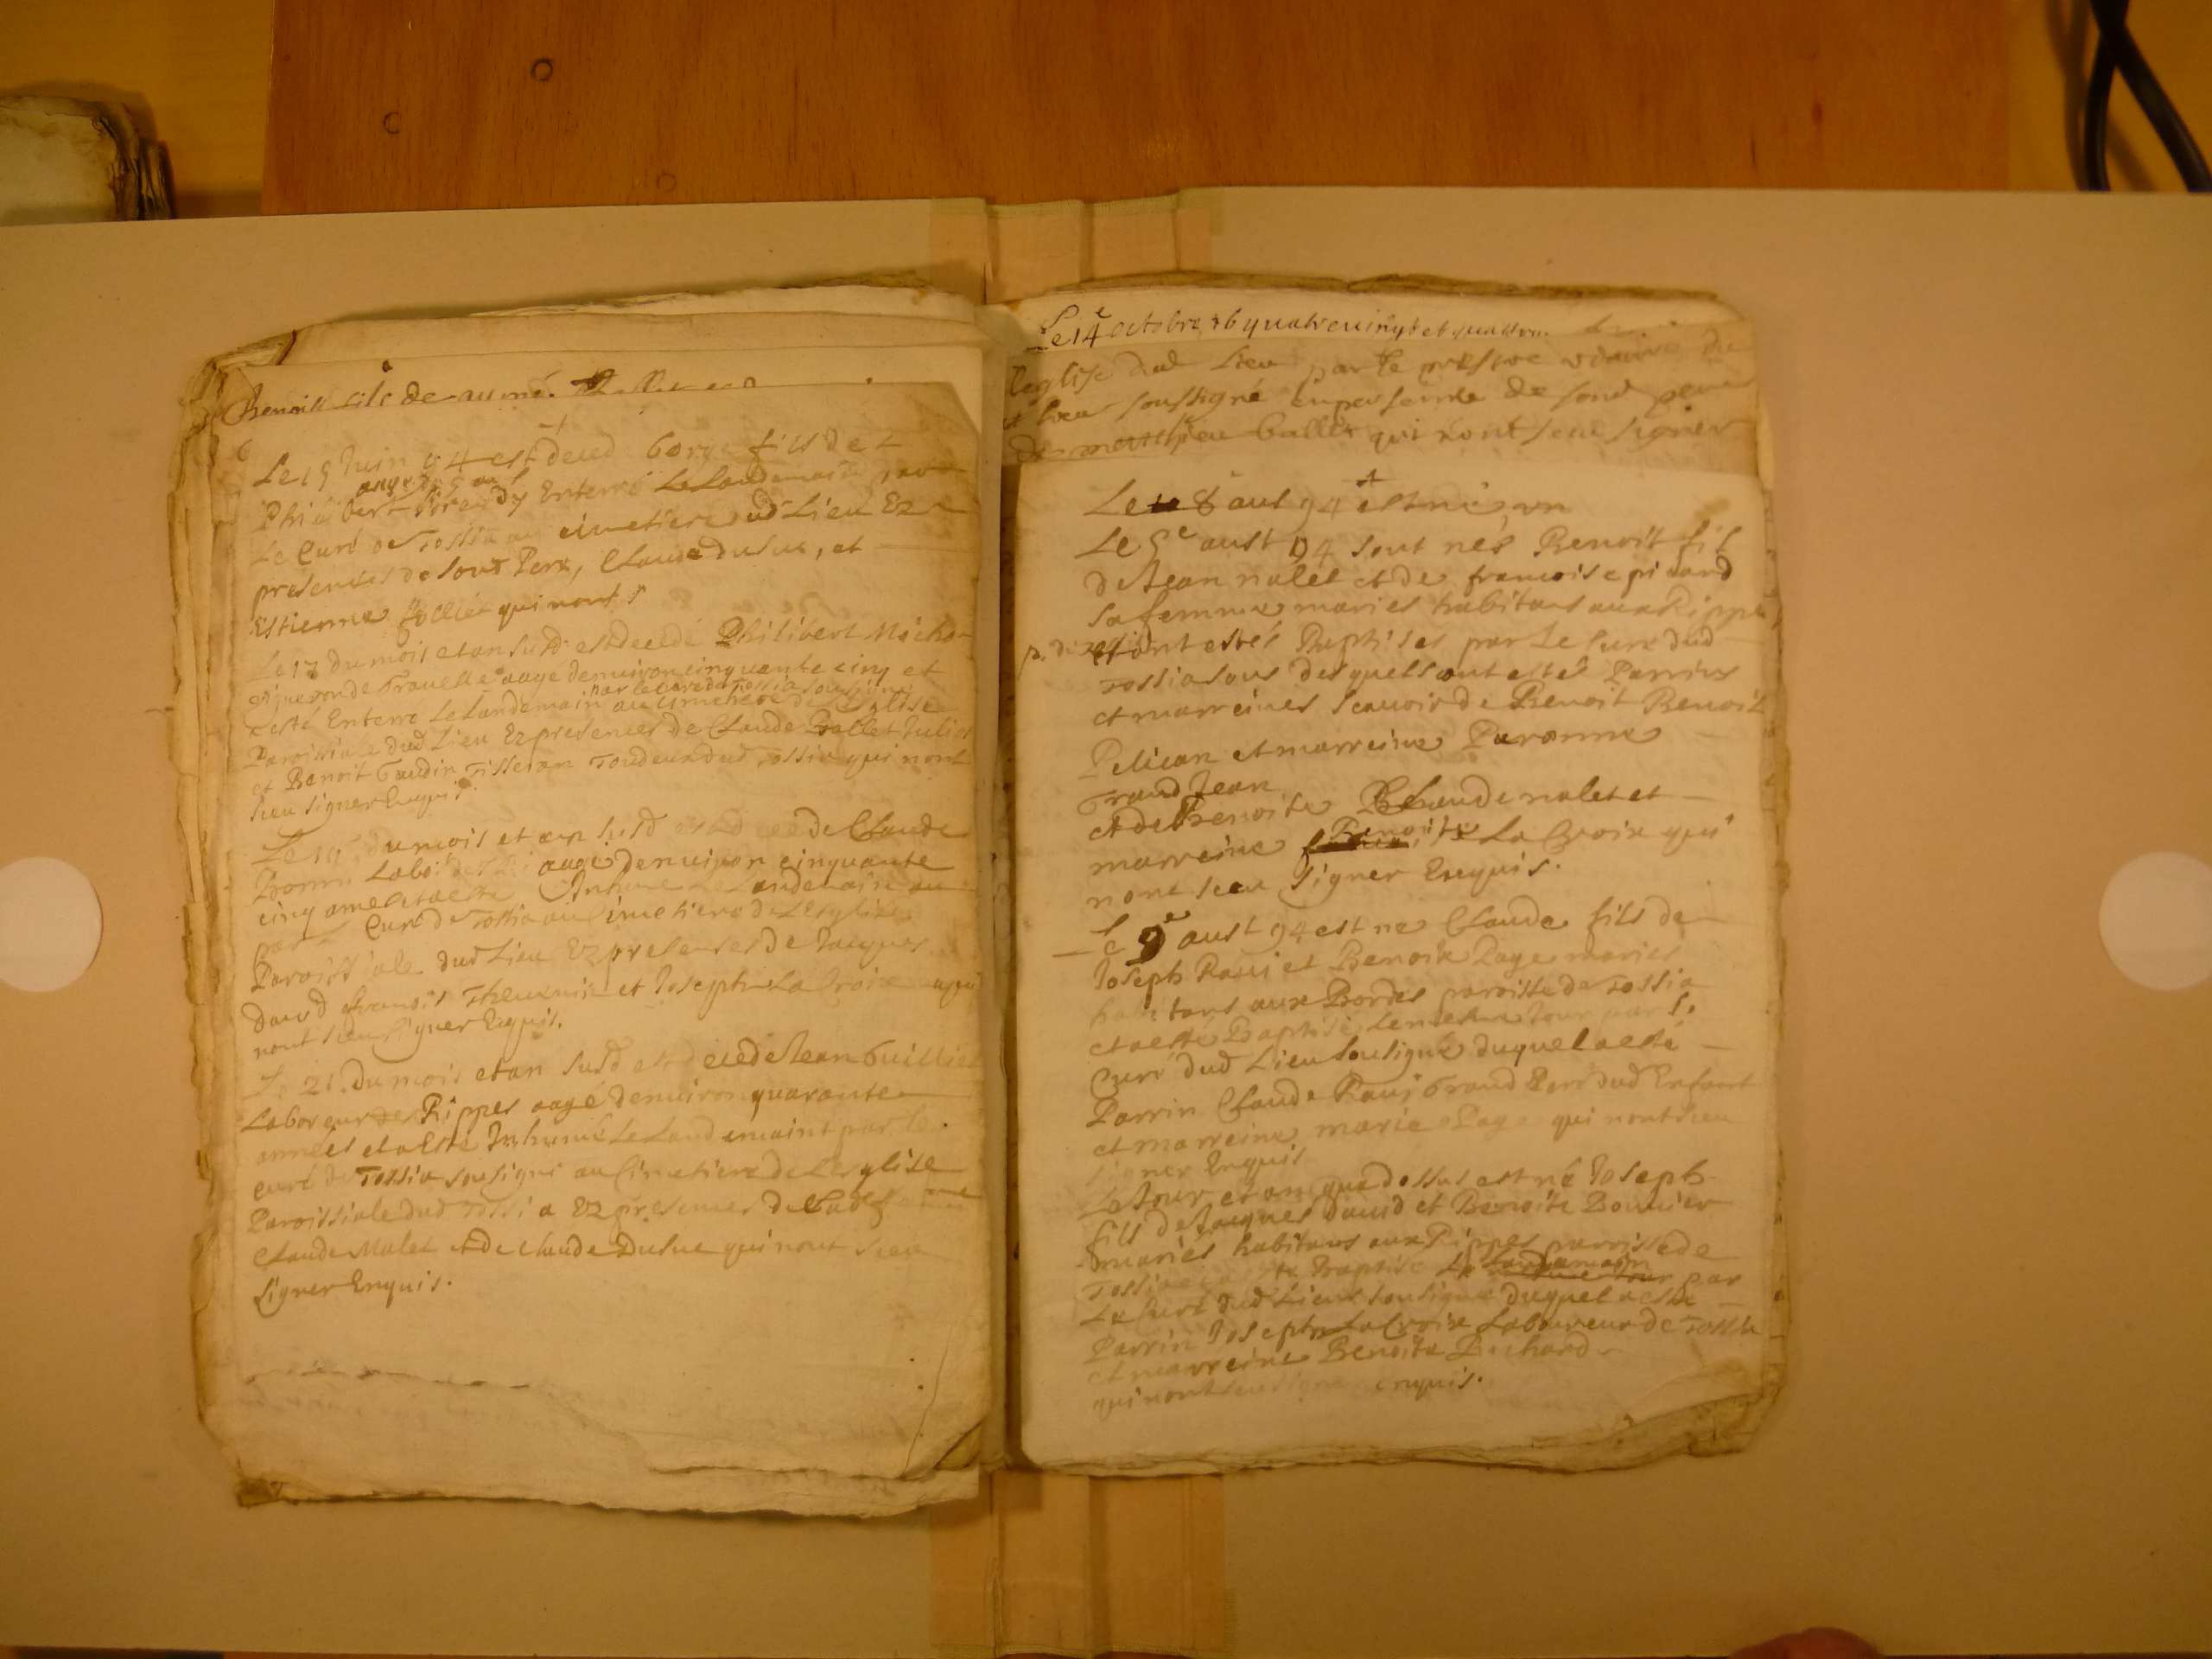 Benoist fils de aymé
6
Le 15 Juin 94 est deced George fils de
aagé de 5 ans
Philibert Enterré Le Landemain par
Le Curé de Tossia au cimetiere dud Lieu Ez
presences de sont Pere, Claude Dusuc, et
Estienne qui nont s
Le 17 du mois et an susd est decedé Philibert Micho
de Travelle aagé denuiron cinquante cinq et
par le curé de Tossia sousigné
a esté Enterré Le Landemain au cimetiere de Leglise
Paroissiale dud Lieu Ez presences de Claude Ballet
et Benoit Gaudin Tisseran Tondeur dud Tossia qui nont
sceu signer Enquis.
Le 19 du mois et an susd est decedé Claude
aagé denuiron cinquante
cinq années et a esté Inhumé Le Landemain au
par Curé de Tossia au Cimetiere de Lesglise
Paroissiale dud Lieu Ez presences de Jacques
Dauid francois et Joseph La Croix qui
nont sceu signer Enquis.
Le 21. du mois et an susd est decedé Jean Guilliet
Laboreur des Rippes aagé denuiron quarante
années et a esté Inhumé Le Landemaint par le
curé de Tossia sousigné au Cimetiere de Lesglise
Paroissiale dud Tossia Ez presences de
Claude Malet et de Claude Dusuc qui nont sceu
signer Enquis.
Le 14e octobre 16 quatreuingt et quattre
leglise dud Lieu par le prestre vicaire du
lieu soussigné en presence de sond pere
de Ballet qui nont sceu signer
Le 10 8 aust 94 est né un
Le 5e aust 94 sont nés Benoit fils
de Jean nalet et de francoise picard
sa femme mariés habitans aux Rippes
et ont estés Baptises par Le Curé dud
Tossia sous desquels ont estés Parrins
et marreines scauoir de Benoit Benoit
Pelican et marreine Paronne
Grand Jean
et de Benoite Claude nalet et
marreine Benoite La Croix qui
nont sceu signer Enquis.
Le 9e aust 94 est né Claude fils de
Joseph Raui et Benoite Page mariés
habitans aux Bordes paroisse de Tossia
et a esté Baptisé Le mesme Jour par L.
Curé dud Lieu sousigné duquel a esté
Parrin Claude Raui Grand Pere dud Enfant
et marreine marie Page qui nont sceu
signer Enquis
Le Jour et an que dessus est né Joseph
fils de Jacques Dauid et Benoite Bouuier
mariés habitans aux Rippes parroisse de
Tossia et a esté Baptisé Le Landemain par
Le Curé dud Lieu sousigné duquel a esté
Parrin Joseph La Croix Laboureur de Tossia
et marreine Benoite Pichard
qui nont sceu signer enquis.